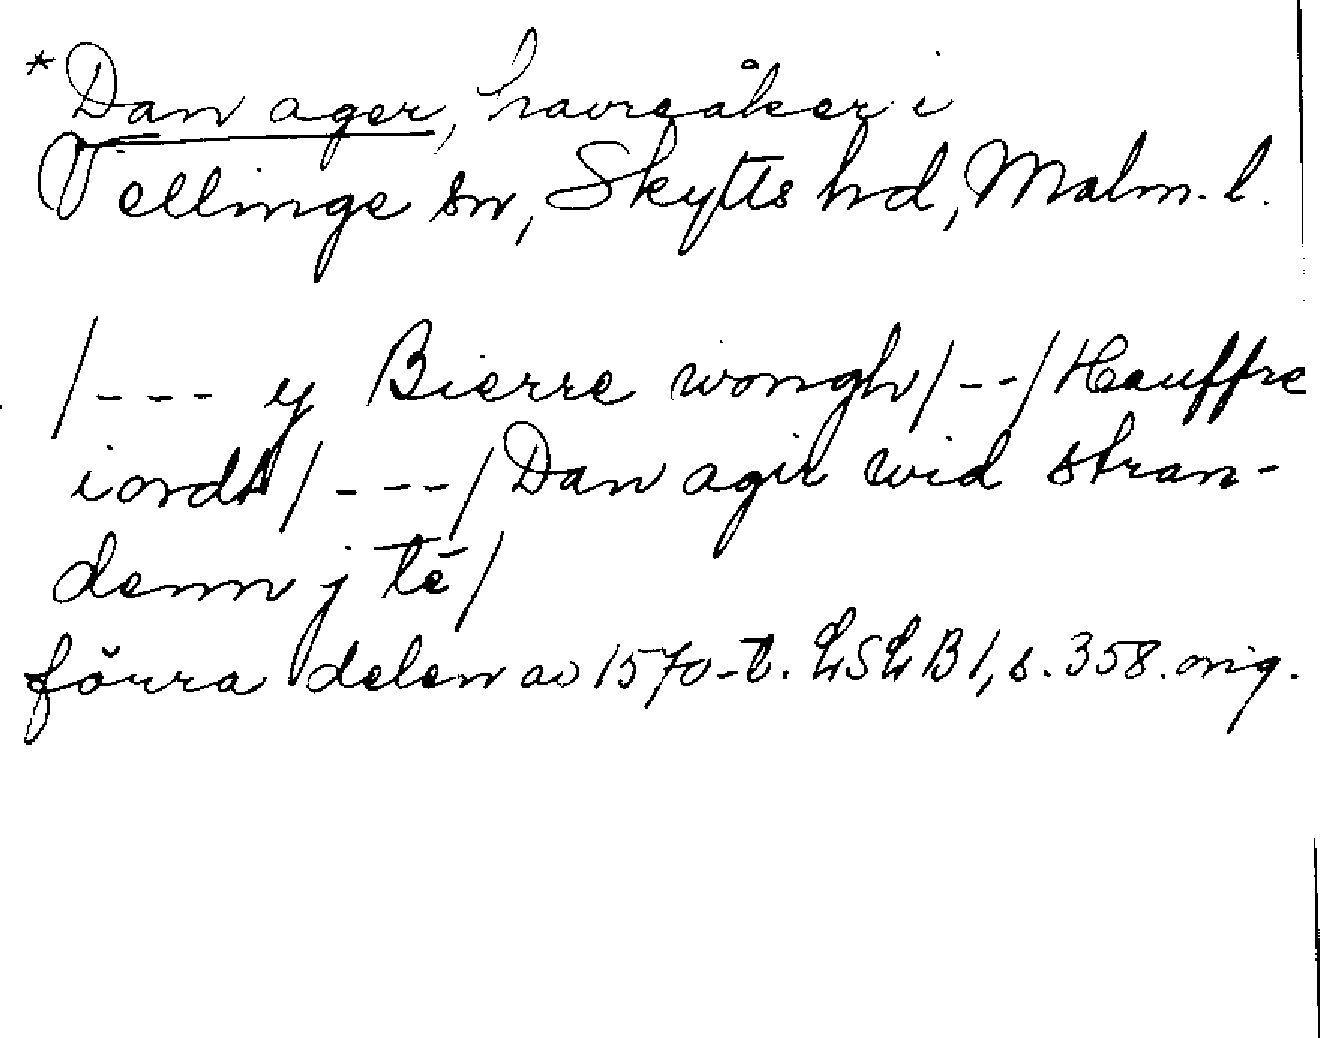 *Dan ager, havreåker i
Vellinge sn, Skytts hd, Malm. l.
/--- y Bierre wongh/--/Hauffre
iordt/---/Dan agir wid stran-
denn j tē/
förra delen av 1570-t. LSLB1, s. 358. orig.